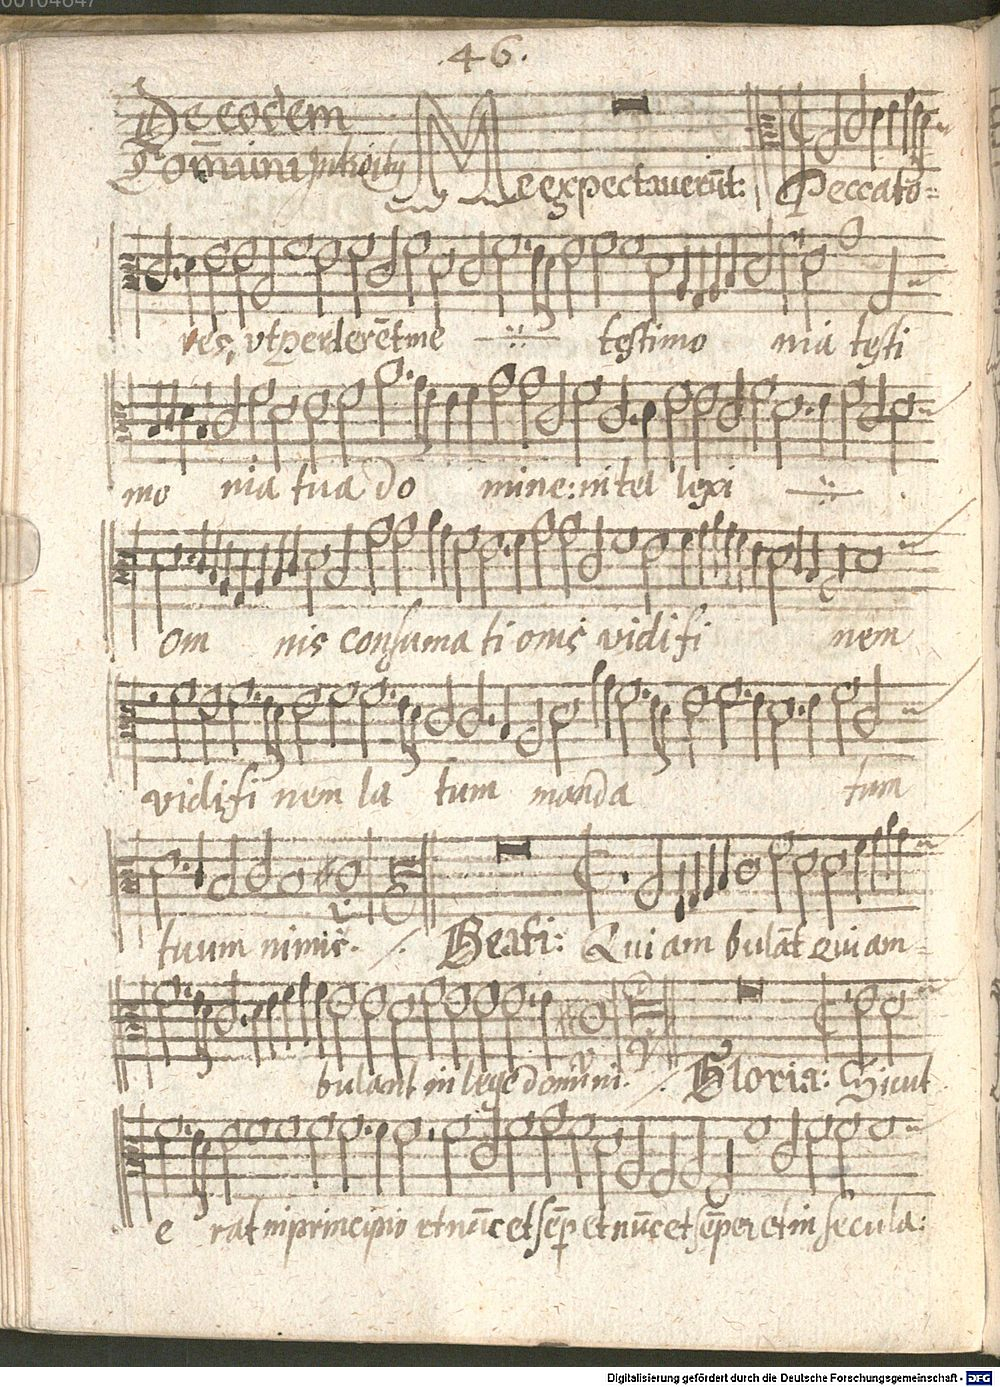 00104847
.46.
De eodem
Com̄uni Introitus
Me expectauerūt: Peccato=
res, vt perderēt me testimo nia testi
mo nia tua do mine: intel lexi
om nis consuma ti onis vidi fi nem
vidi fi nem la tum manda tum
tuum nimis. Beati: Qui am bulāt qui am=
bulant in lege domini. Gloria: Sicut
e rat in principio et nūc et sēp et nūc et sēper et in secula:
Digitalisierung gefördert durch die Deutsche Forschungsgemeinschaft - DFG